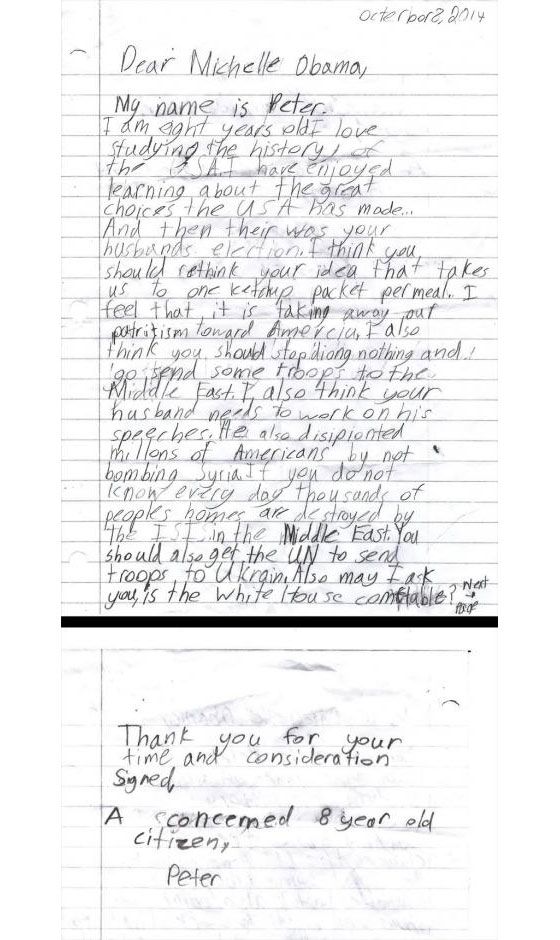 octerbor2, 2014
Dear Michelle Obama,
My name is Peter.
I am eght years old I love
studying the history of
the USA. I have enjoyed
learning about the great
choices the USA has made...
And then their was your
husbands election. I think you
should rethink your idea that takes
us to one ketchup packet per meal. I
feel that, it is taking away our
patritism toward Amercia, I also
think you should stop diong nothing and
go send some troops to the
Middle East. I, also think your
husband needs to work on his
speeches. He also disipionted
millons of Americans by not
bombing Syria. If you do not
know every day thousands of
peoples homes are destroyed by
the ISI in the Middle East. You
should also get the UN to send
troops to Ukrain. Also may I ask
you, is the White House comftable? Next
→
Page
Thank you for your
time and consideration
Signed,
A concerned 8 year old
citizen,
Peter